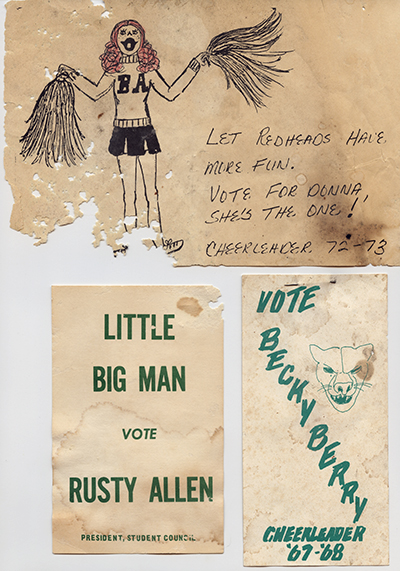 BA
LET REDHEADS HAVE
MORE FUN.
VOTE FOR DONNA,
SHE'S THE ONE!!
CHEERLEADER 72-73
LITTLE
BIG MAN
VOTE
RUSTY ALLEN
PRESIDENT, STUDENT COUNCIL
VOTE
BECKY BERRY
CHEERLEADER
'67-'68